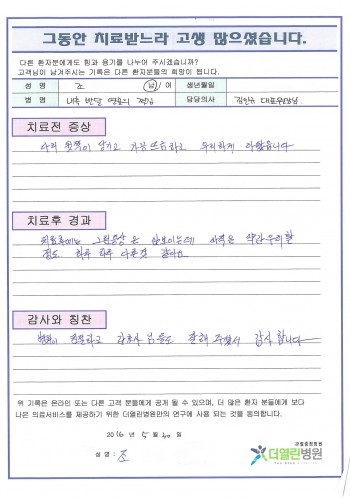 그동안 치료받느라 고생 많으셨습니다.
다른 환자분에게도 힘과 용기를 나누어 주시겠습니까?
고객님이 남겨주시는 기록은 다른 환자분들의 희망이 됩니다.
성 명 조 남/여 생년월일
병 명 내측 반달 연골의 찢김 담당의사 김진규 대표원장님
치료전 증상
다리 뒷쪽이 땅기고 가끔 뜨끔하고 우리하게 아팠읍니다
치료후 경과
치료후에는 그런증상은 안보이는데 아직은 약간 우리할
정도 하루 하루 다른것 같아요
감사와 칭찬
병원이 친절하고 간호사님들도 잘해 주셔서 감사합니다
위 기록은 온라인 또는 다른 고객 분들에게 공개 될 수 있으며, 더 많은 환자 분들에게 보다
나은 의료서비스를 제공하기 위한 더열린병원만의 연구에 사용 되는 것을 동의합니다.
2016 년 5 월 일
성 명 : 조
관절중점병원
더열린병원